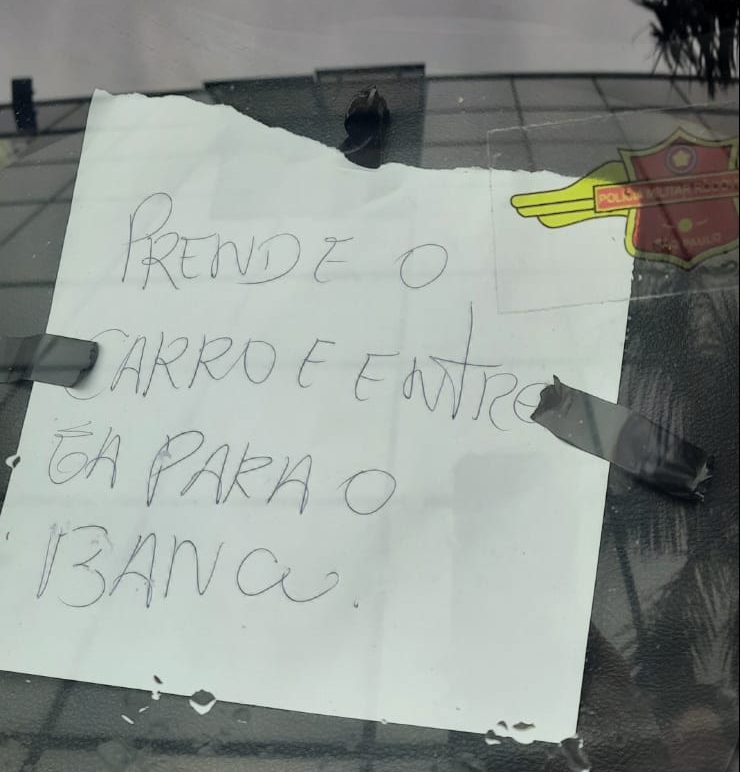 PRENDE O
CARRO E ENTRE
GA PARA O
BANCO.
POLÍCIA MILITAR RODOV
SÃO PAULO